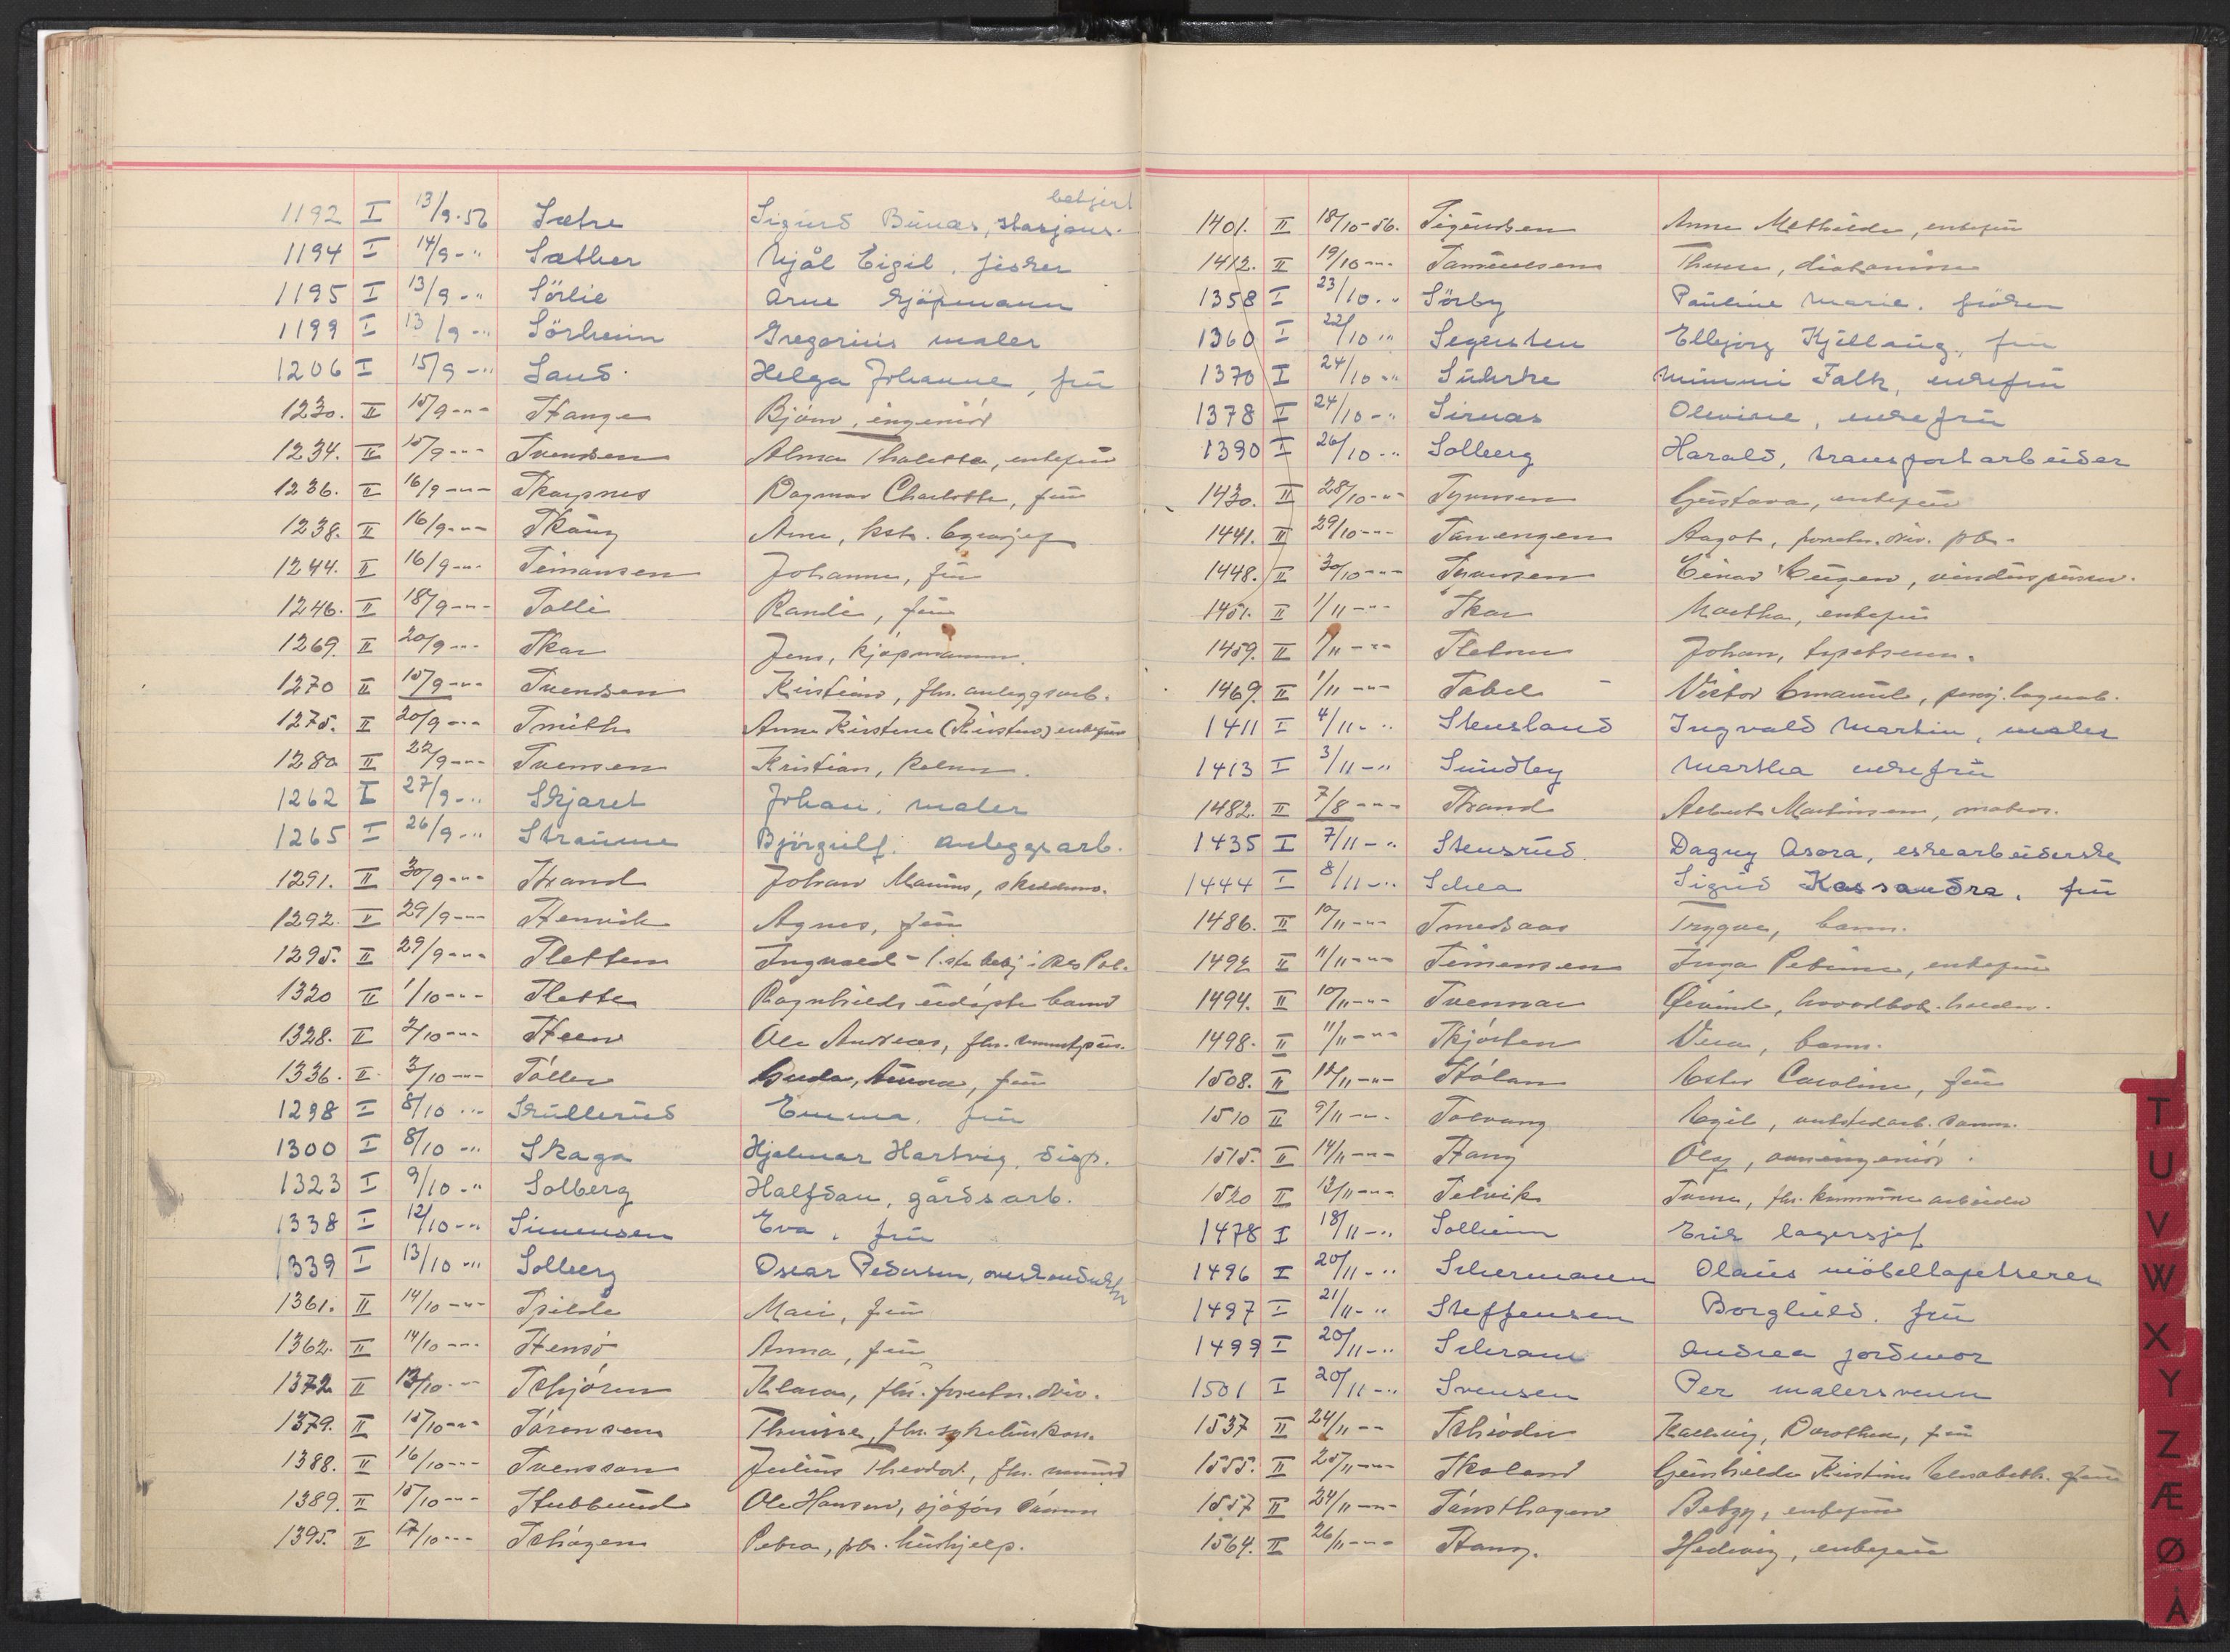 betjent
1192 I 13/9-56 Sætre Sigurd Bünæs, stasjons-
1194 I 14/9-" Sæther Njål Eigil, fisker
1195 I 13/9-" Sörlie Arne kjöpmann
1199 I 13/9-" Sörheim Gregorius maler
1206 I 15/9-" Sand Helga Johanne, frü
1230. II 15/9-"- Stange Björn, ingeniör
1234. II 15/9-"- Svendsen Alma Thaletta, enkefrü
1236. II 16/9-"- Skarpnes Dagmar Charlotte, frü
1238. II 16/9-"- Skaug Arne, kst.
1244. II 16/9-"- Simonsen Johanne, frü
1246. II 18/9-"- Solli Randi, frü
1269. II 20/9-"- Skar Jens, kjöpmann.
1270 II 15/9-"- Svendsen Kristian, fhv. anleggsarb.
1275. II 20/9-"- Smith Anne Kirstine (Kirsten) enkefrü
1280 II 22/9-"- Svensen Kristian, kelner.
1262 I 27/9-" Skjaret Johan, maler
1265 I 26/9-" Straume Björgulf. anleggsarb.
1291. II 30/9-"- Strand Johan Maurus,
1292. II 29/9-"- Stenvik Agnes, frü
1295. II 29/9-"- Sletten Ingvald -
1320 II 1/10-"- Slette Ragnhilds üdöpte barn
1328. II 2/10-"- Steen Ole Andreas, fhv.
1336. II 3/10-"- Söller Guda, Anna, frü
1298 I 8/10-" Skullerud Emma. frü
1300 I 8/10-" Skaga Hjalmar Hartvig, disp.
1323 I 9/10-" Solberg Halfdan, gårdsarb.
1338 I 12/10-" Simensen Eva. frü
1339 I 13/10-" Solberg Oscar Pedersen, overkonduktør
1361. II 14/10-"- Spilde Mari, frü
1362. II 14/10-"- Stensö Anna, frü
1372 II 13/10-"- Schjören Klara, fhv. forretn. driv.
1379. II 15/10-"- Sörensen Thrine, fhv.
1388. II 16/10-"- Svensson Julius Theodor, fhv.
1389. II 15/10-"- Stubberud Ole Hansen,
1395. II 17/10-"- Schögen Petra, pb. hüshjelp.
1401. II 18/10-56. Sigurdsen Anne Mathilde, enkefrü
1412. II 19/10-"- Samuelsen diakonisse
1358 I 23/10-" Sörby Pauline Marie. fröken
1360 I 22/10 " Segersten Ellbjörg Kjellaug, frü
1370 I 24/10-" Suhrke Mimmi Falk, enkefrü
1378 I 24/10-" Sirnæs Olevine, enkefrü
1390 I 26/10-" Solberg Harald, transportarbeider
1430. II 28/10-"- Syversen Gustava, enkefrü
1441. II 29/10-"- Sanengen Aagot, forretn. driv. pb.
1448. II 30/10-"- Syversen Einar Eugen, vinduspusser.
1451. II 1/11-"- Skar Martha, enkefrü
1459. II 1/11-"- Sletner Johan,
1469. II 1/11-"- Sabel - Victor Emanuel, pensj. lagerarb.
1411 I 4/11-" Stensland Ingvald Martin, maler
1413 I 3/11-" Sundby Martha enkefrü
1482. II 7/8-"- Strand Albert Martinsen, matros.
1435 I 7/11-" Stensrud. Dagny Asora, eskearbeiderske
1444 I 8/11-" Schea Sigrid Kassandra. frü
1486. II 10/11-"- Smedsaas Trygve, barn.
1492 II 11/11-"- Simensen Inga Petrine, enkefrü
1494. II 10/11-"- Svennar Öivind,
1498. II 11/11-"- Skjörten Vera, barn.
1508. II 12/11-"- Stölan Ester Caroline, frü
1510 II 9/11-"- Solvang Egil,
1515. II 14/11-"- Stang Olaf,
1520 II 13/11-"- Selvik fhv. kommunearbeider
1478 I 18/11-" Solheim Erik lagersjef
1496 I 20/11-" Schermann Olaus möbeltapetserer
1497 I 21/11-" Steffensen Borghild. frü
1499 I 20/11-" Schram Andrea jordmor
1501 I 20/11-" Svensen Per malersvenn
1537 II 24/11-"- Schröder Dorothea, frü
1555. II 25/11-"- Skoland Gunhilda Kristine Elisabeth. frü
1557 II 24/11-"- Sönsthagen Betzy, enkefrü
1564. II 26/11-"- Stang. Hedvig, enkefrü
T
U
V
W
X
Y
Z
Æ
Ø
Å